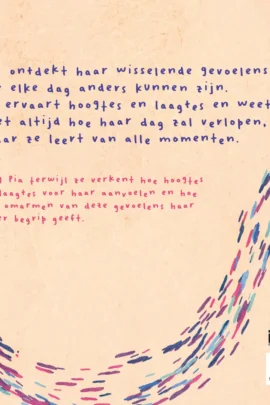 ontdekt haar wisselende gevoelens
elke dag anders kunnen zijn.
ervaart hoogtes en laagtes en weet
altijd hoe haar dag zal verlopen,
ze leert van alle momenten.
Pia terwijl ze verkent hoe hoogtes
laagtes voor haar aanvoelen en hoe
omarmen van deze gevoelens haar
begrip geeft.